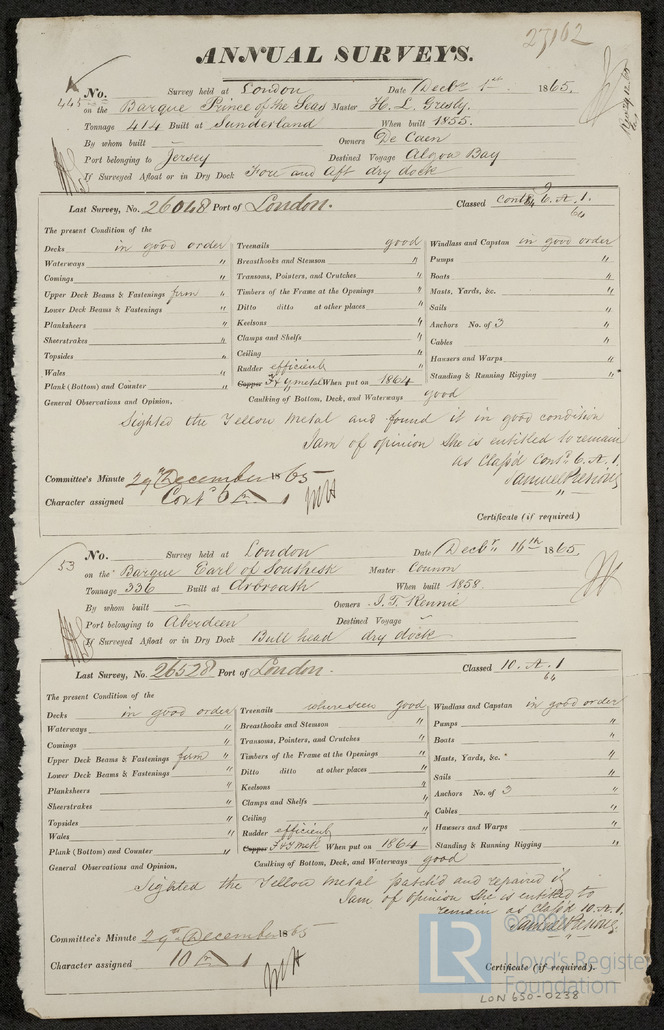 27162
ANNUAL SURVEYS.
445
No. Survey held at London Date Decbr 1st 1865.
on the Barque Prince of the Seas Master H. L. Gresly.
Tonnage 414 Built at Sunderland When built 1855.
By whom built — Owners De Caen
Port belonging to Jersey Destined Voyage Algoa Bay
If Surveyed Afloat or in Dry Dock Fore and Aft dry dock
Last Survey, No. 26048 Port of London. Classed Contd 6. A. 1.
64
The present Condition of the
Decks in good order
Waterways "
Comings "
Upper Deck Beams & Fastenings firm "
Lower Deck Beams & Fastenings "
Planksheers "
Sheerstrakes "
Topsides "
Wales "
Plank (Bottom) and Counter "
Treenails good
Breasthooks and Stemson "
Transoms, Pointers, and Crutches "
Timbers of the Frame at the Openings "
Ditto ditto at other places "
Keelsons "
Clamps and Shelfs "
Ceiling "
Rudder efficient
Copper F & Y metal When put on 1864
Windlass and Capstan in good order
Pumps "
Boats "
Masts, Yards, &c. "
Sails "
Anchors No. of 3 "
Cables "
Hawsers and Warps "
Standing & Running Rigging "
General Observations and Opinion, Caulking of Bottom, Deck, and Waterways good
Sighted the Yellow Metal and found it in good condition
I am of opinion she is entitled to remain
as Class'd Contd. 6. A. 1.
Samuel Pretious
Committee's Minute 29th December 1865
Character assigned Contd 6 A 1
Certificate (if required)
53
No. Survey held at London Date Decbr. 16th 1865.
on the Barque Earl of Southesk Master
Tonnage 336 Built at Arbroath When built 1858.
By whom built — Owners J. T. Rennie
Port belonging to Aberdeen Destined Voyage
If Surveyed Afloat or in Dry Dock Bull head dry dock
Last Survey, No. 26528 Port of London. Classed 10. A. 1
64
The present Condition of the
Decks in good order
Waterways "
Comings "
Upper Deck Beams & Fastenings firm "
Lower Deck Beams & Fastenings "
Planksheers "
Sheerstrakes "
Topsides "
Wales "
Plank (Bottom) and Counter "
Treenails where seen good
Breasthooks and Stemson "
Transoms, Pointers, and Crutches "
Timbers of the Frame at the Openings "
Ditto ditto at other places "
Keelsons "
Clamps and Shelfs "
Ceiling "
Rudder efficient
Copper F & Y Metl. When put on 1864
Windlass and Capstan in good order
Pumps "
Boats "
Masts, Yards, &c. "
Sails "
Anchors No. of 3 "
Cables "
Hawsers and Warps "
Standing & Running Rigging "
General Observations and Opinion, Caulking of Bottom, Deck, and Waterways good
Sighted the Yellow Metal patch'd and repaired it
I am of opinion she is entitled to
remain as Class'd 10. A. 1.
Samuel Pretious
Committee's Minute 29th December 1865
Character assigned 10 A 1
Certificate (if required).
LR
Lloyd's Register
Foundation
LON 650-0238